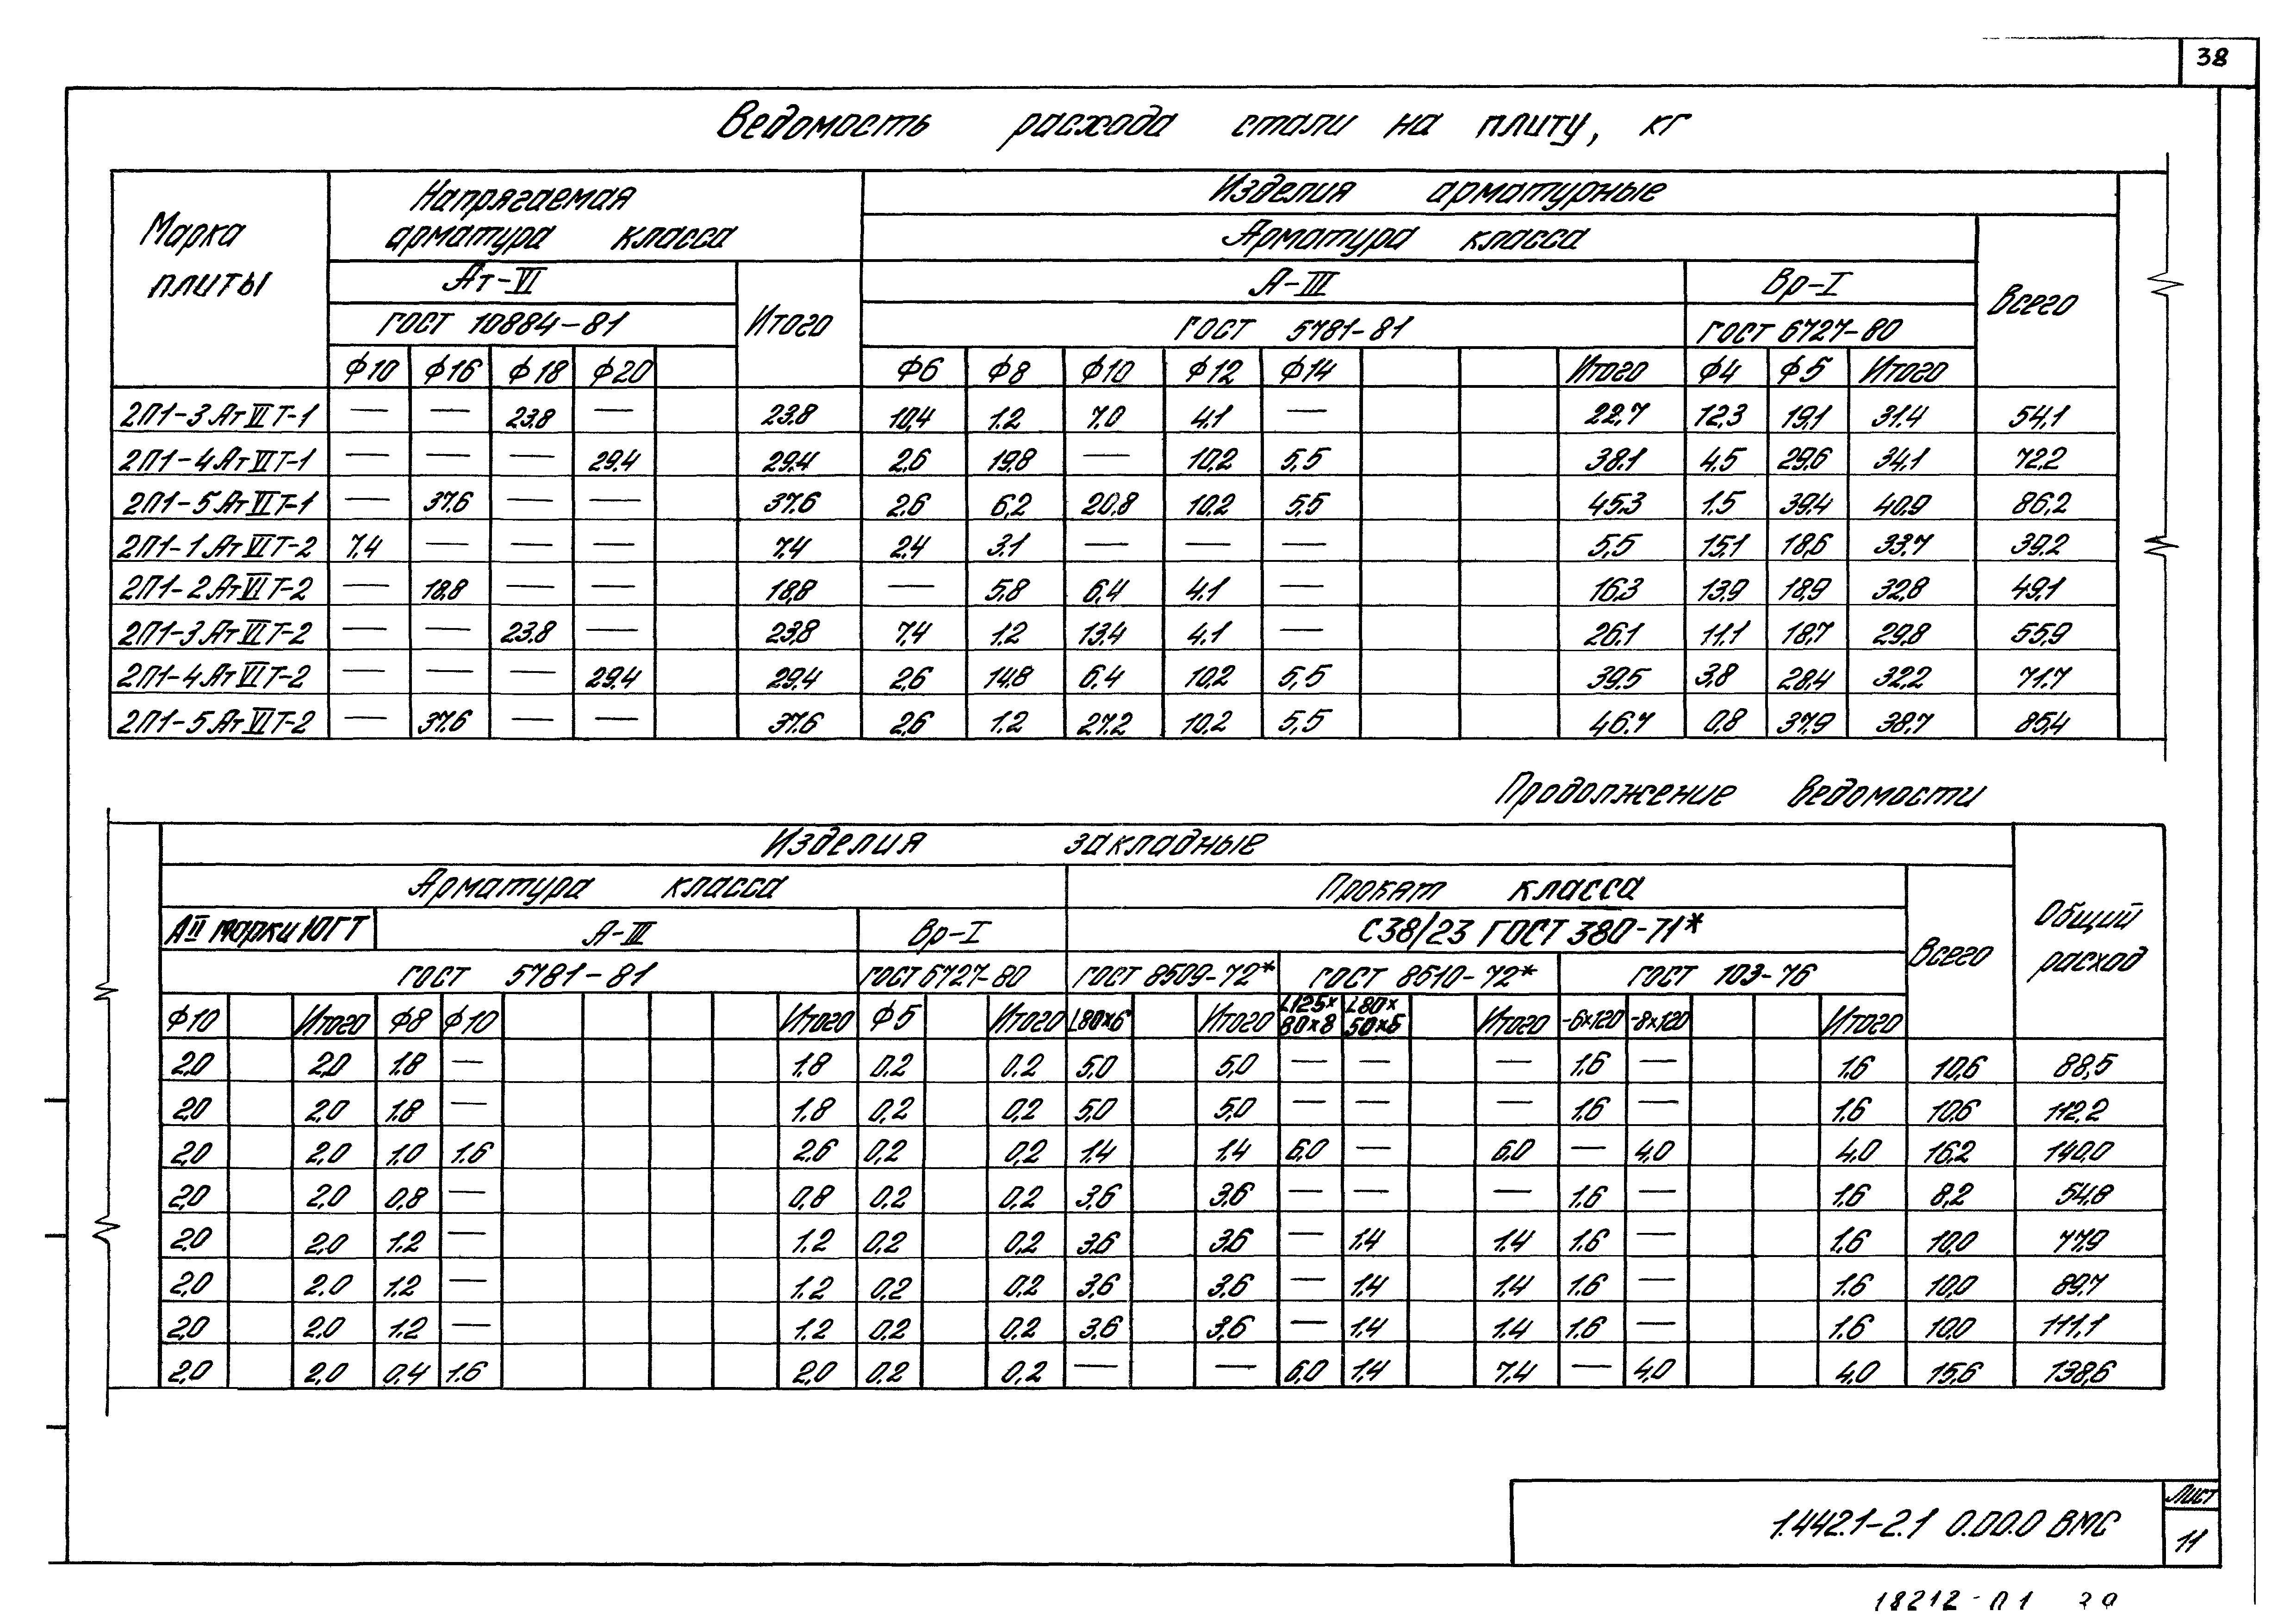 38
Ведомость расхода стали на плиту, кг
Марка плиты
Напрягаемая арматура класса
Изделия арматурные
Арматура класса
Ат-VI
А-III
Вр-I
Всего
ГОСТ 10884-81
Итого
ГОСТ 5781-81
ГОСТ 6727-80
ϕ10 ϕ16 ϕ18 ϕ20 ϕ6 ϕ8 ϕ10 ϕ12 ϕ14 Итого ϕ4 ϕ5 Итого
2П1-3АтVIТ-1 — — 23.8 — 23.8 10,4 1.2 7.0 4.1 — 22,7 12,3 19,1 31.4 54,1
2П1-4АтVIТ-1 — — — 29.4 29,4 2,6 19,8 — 10,2 5,5 38.1 4,5 29,6 34,1 72,2
2П1-5АтVIТ-1 — 37,6 — — 37.6 2,6 6,2 20,8 10,2 5,5 45,3 1.5 39,4 40,9 86,2
2П1-1АтVIТ-2 7,4 — — — 7,4 2,4 3,1 — — — 5,5 15,1 18,6 33,7 39,2
2П1-2АтVIТ-2 — 18,8 — — 18,8 — 5,8 6,4 4.1 — 16,3 13,9 18,9 32,8 49,1
2П1-3АтVIТ-2 — — 23.8 — 23,8 7,4 1.2 13,4 4.1 — 26.1 11,1 18,7 29,8 55,9
2П1-4АтVIТ-2 — — — 29.4 29,4 2,6 14,8 6,4 10,2 5,5 39,5 3,8 28,4 32,2 71.7
2П1-5АтVIТ-2 — 37.6 — — 37,6 2,6 1.2 27.2 10,2 5,5 46.7 0,8 37,9 38,7 85,4
Продолжение ведомости
Изделия закладные
Общий расход
Арматура класса
Прокат класса
Всего
АII марки 10ГТ
А-III
Вр-I
С38/23 ГОСТ 380-71*
ГОСТ 5781-81
ГОСТ 6727-80
ГОСТ 8509-72*
ГОСТ 8510-72*
ГОСТ 103-76
ϕ10 Итого ϕ8 ϕ10 Итого ϕ5 Итого L80х6 Итого L125х80х8 L80х50х5 Итого -6х120 -8х120 Итого
2,0 2,0 1.8 — 1,8 0.2 0.2 5,0 5,0 — — — 1.6 — 1.6 10,6 88,5
2,0 2,0 1.8 — 1.8 0,2 0,2 5,0 5,0 — — — 1.6 — 1.6 10,6 112,2
2,0 2,0 1,0 1.6 2,6 0,2 0,2 1.4 1.4 6,0 — 6,0 — 4,0 4,0 16,2 140,0
2,0 2,0 0,8 — 0,8 0,2 0,2 3,6 3,6 — — — 1.6 — 1.6 8,2 54,8
2,0 2,0 1.2 — 1.2 0,2 0,2 3,6 3,6 — 1.4 1.4 1.6 — 1.6 10,0 77,9
2,0 2.0 1.2 — 1.2 0,2 0,2 3,6 3,6 — 1,4 1,4 1.6 — 1.6 10,0 89,7
2,0 2.0 1.2 — 1.2 0,2 0,2 3,6 3,6 — 1.4 1.4 1.6 — 1.6 10,0 111,1
2,0 2,0 0,4 1.6 2,0 0,2 0,2 — — 6,0 1,4 7,4 — 4,0 4,0 15,6 138,6
1.442.1-2.1 0.00.0 ВМС
Лист
11
18212-01 39